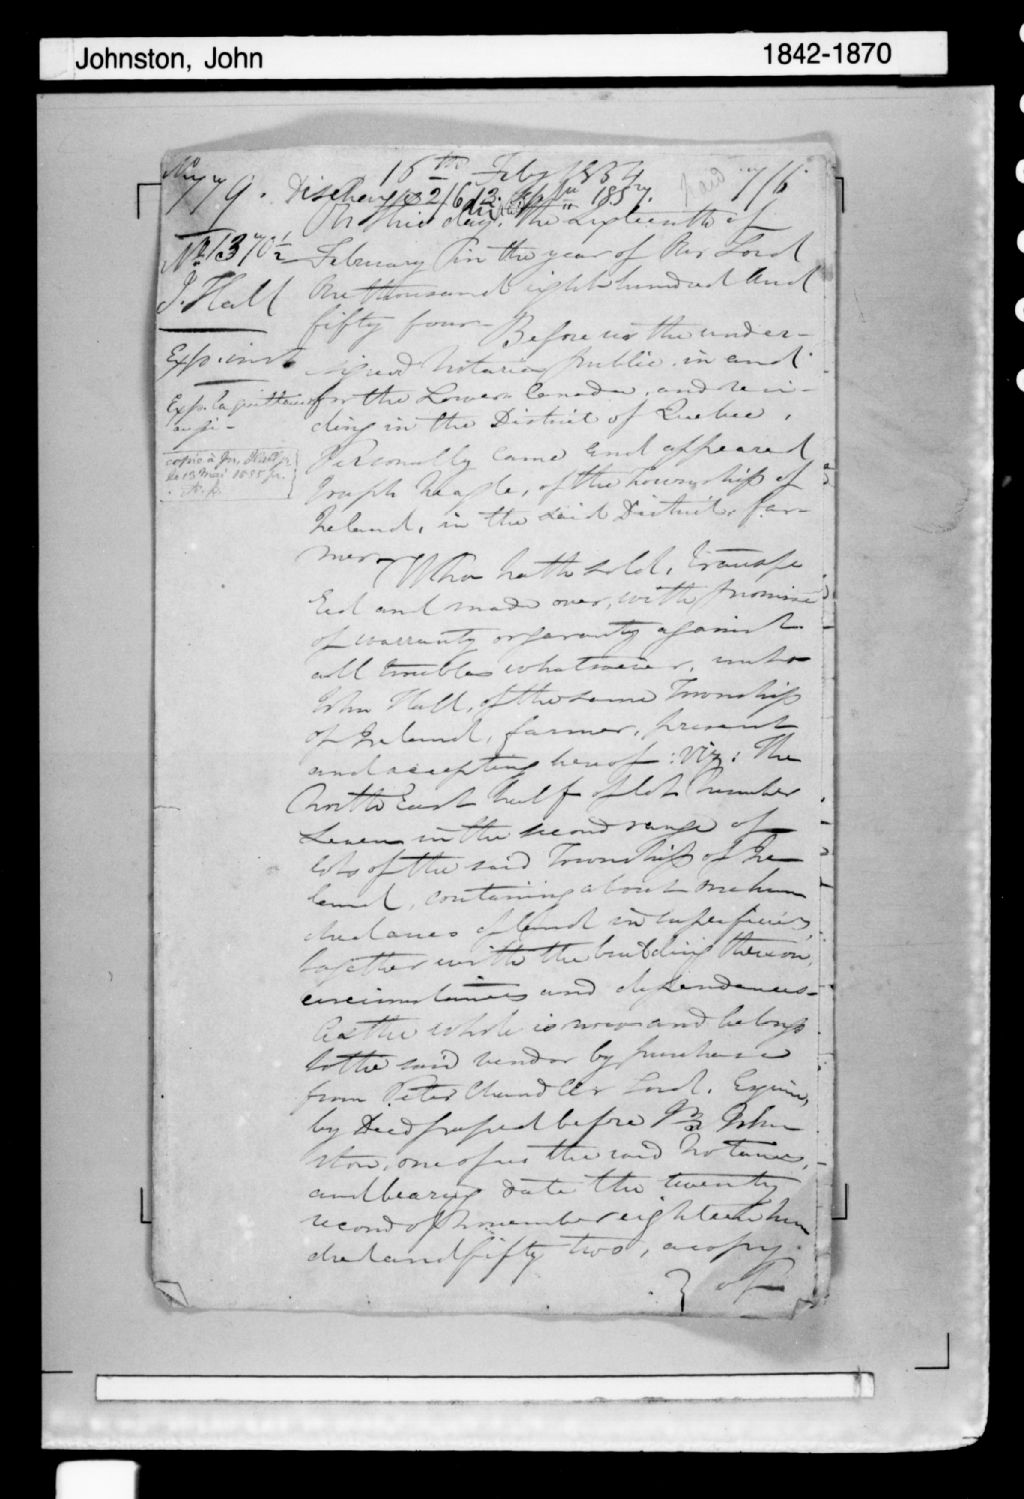 Johnston, John
1842-1870
16th Feby 1854
779. Discharge 2163. 1857.
paid 7/6
On this day, the Sixteenth of
No. 1370½
February in the year of Our Lord
J. Hall
One thousand eight hundred and
fifty four - Before us the under-
Exp.
signed Notaries public in and
Exp. la quittance
for the Lower Canada, and resi-
aussi -
ding in the District of Quebec,
copie à Jn. Hall
le 15 Mai 1855
Personally came and appeared
Joseph Neagle, of the Township of
Ireland, in the said District, far-
mer - Who hath sold, transfe
red and made over, with promise
of warranty or garanty against
all troubles whatsoever, unto
John Hall, of the same Township
of Ireland, farmer, present
and accepting hereof: viz: The
North East half of lot Number
Seven in the second range of
lots of the said Township of Ire-
land, containing about one hun
dred acres of land in superficies,
together with the building thereon,
circumstances and dependances -
As the whole is now and belongs
to the said vendor by purchase
from Peter Chandler Lord, Esquire,
by Deed passed before John
ston, one of us the said Notaries,
and bearing date the twenty
second of November eighteen hun
dred and fifty two, a copy
of